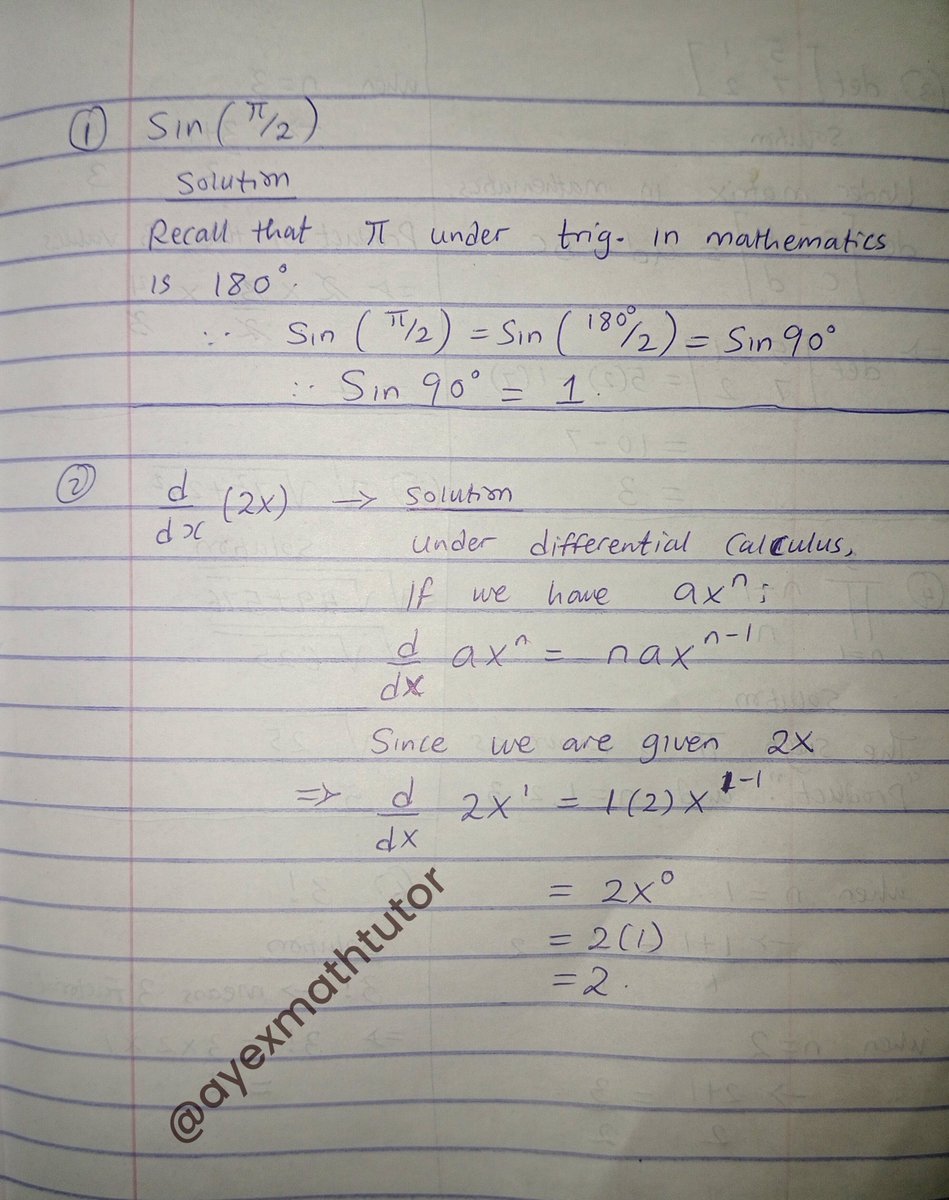 ① Sin(π/2)
Solution
Recall that π under trig. in mathematics
is 180°.
∵ Sin (π/2) = Sin (180°/2) = Sin 90°
∵ Sin 90° = 1.
② d/dx (2x) → Solution
Under differential Calculus,
If we have axⁿ;
d/dx axⁿ = naxⁿ⁻¹
Since we are given 2x
⇒ d/dx 2x¹ = 1(2)x¹⁻¹
= 2x⁰
= 2(1)
= 2.
@ayexmathtutor